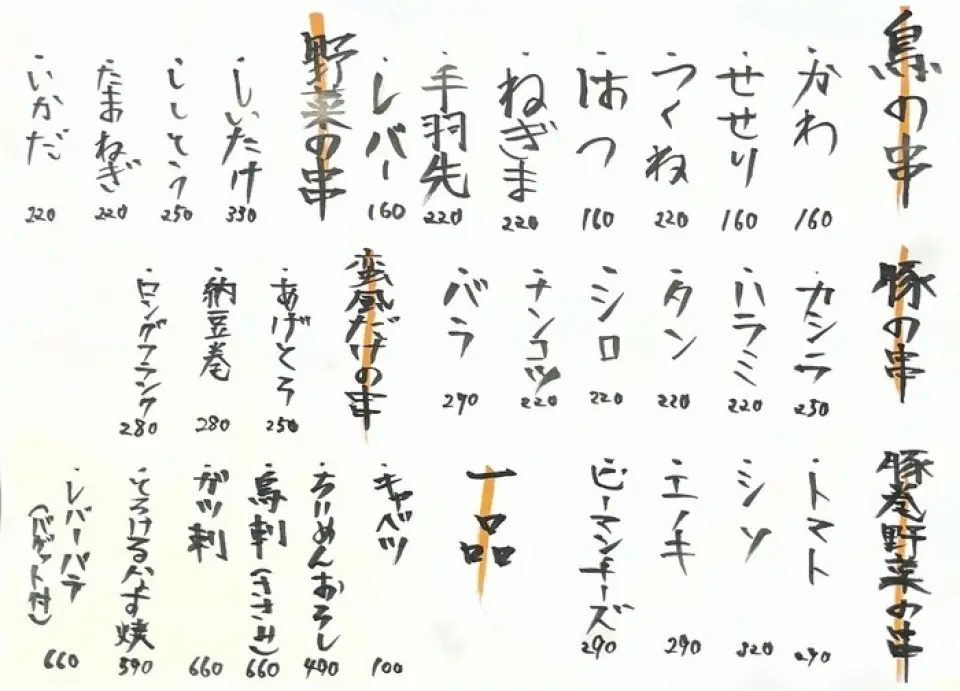 鳥の串
・かわ 160
・せせり 160
・つくね 220
・はつ 160
・ねぎま 220
・手羽先 220
・レバー 160
野菜の串
・しいたけ 330
・ししとう 250
・たまねぎ 220
・いかだ 220
豚の串
・カシラ 250
・ハラミ 220
・タン 220
・シロ 220
・ナンコツ 220
・バラ 290
蛮風だけの串
・あげとろ 250
・納豆巻 280
・ロングフランク 280
豚巻野菜の串
・トマト 290
・シソ 320
・エノキ 290
・ピーマンチーズ 290
一品
・キャベツ 100
・ちりめんおろし 490
・鳥刺(ささみ) 660
・ガツ刺 660
・とろけるなす焼 590
・レバーパテ
(バゲット付) 660